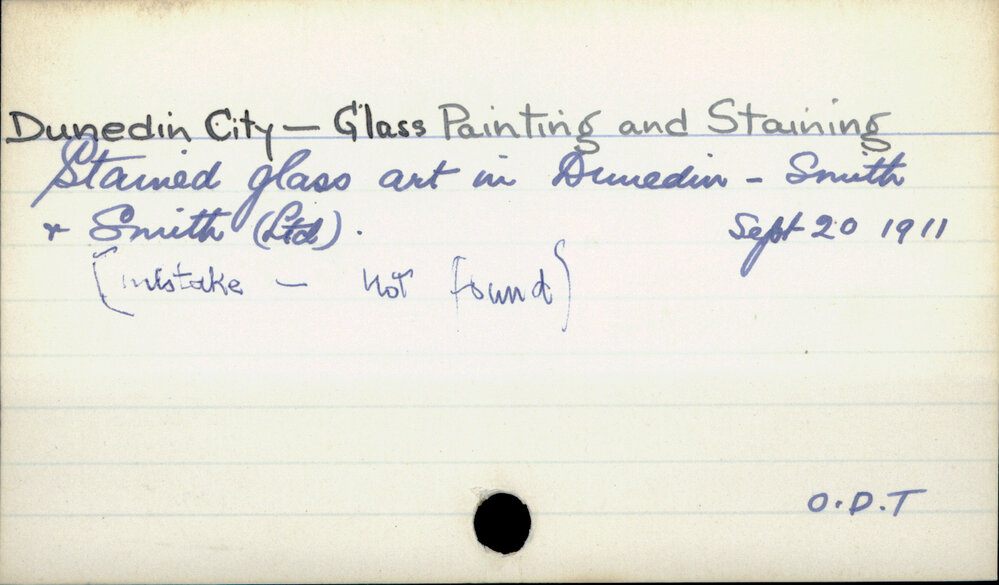 Dunedin City — Glass Painting and Staining
Stained glass art in Dunedin - Smith
& Smith (Ltd). Sept 20 1911
(mistake — not found)
O.D.T